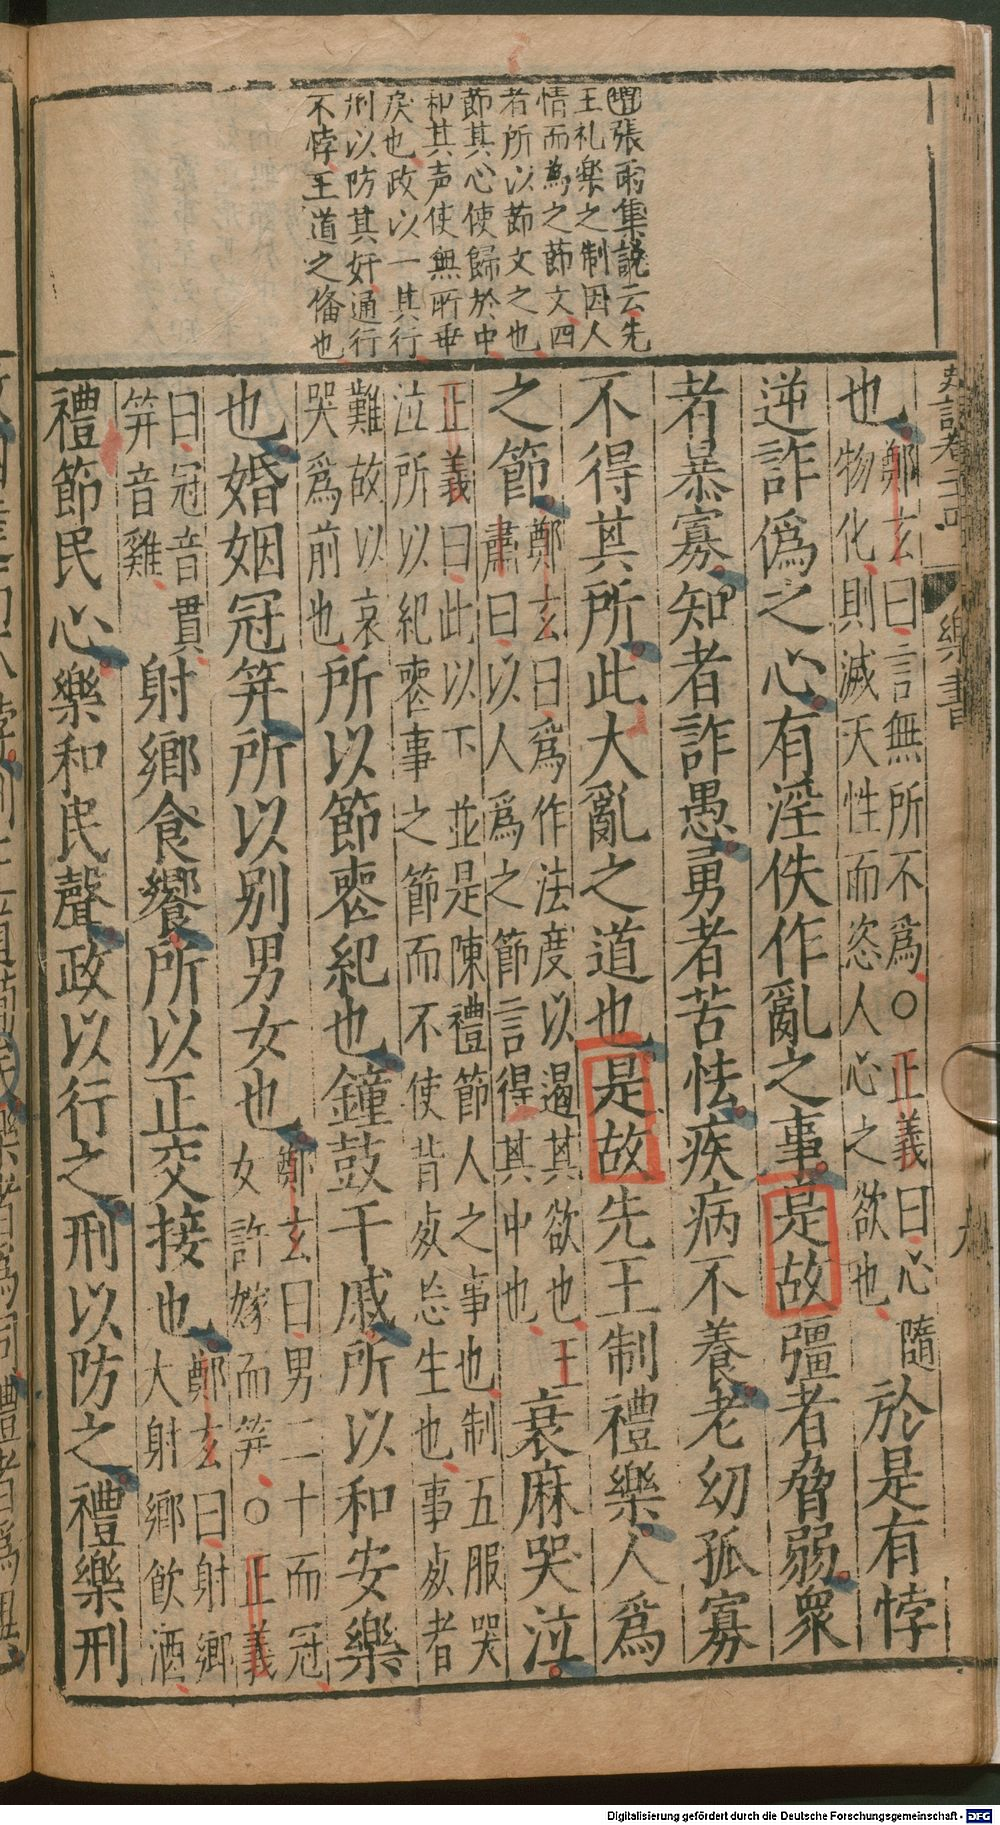 增張雨集說云先
王礼樂之制因人
情而為之節文四
者所以節文之也
節其心使歸於中
和其声使無所乖
戾也政以一其行
刑以防其奸通行
不悖王道之俻也
史記卷二十四
樂書
也鄭玄曰言無所不爲○正義曰心隨
物化則滅天性而恣人心之欲也於是有悖
逆詐僞之心有淫佚作亂之事是故彊者脅弱衆
者暴寡知者詐愚勇者苦怯疾病不養老幼孤寡
不得其所此大亂之道也是故先王制禮樂人爲
之節鄭玄曰爲作法度以遏其欲也王
肅曰以人爲之節言得其中也衰麻哭泣
正義曰此以下並是陳禮節人之事也制五服哭
泣所以紀喪事之節而不使背死忘生也事死者
難故以哀
哭爲前也所以節喪紀也鐘鼓干戚所以和安樂
也婚姻冠笄所以别男女也鄭玄曰男二十而冠
女許嫁而笄○正義
曰冠音貫
笄音雞射鄉食饗所以正交接也鄭玄曰射鄉
大射鄉飲酒
禮節民心樂和民聲政以行之刑以防之禮樂刑
Digitalisierung gefördert durch die Deutsche Forschungsgemeinschaft - DFG